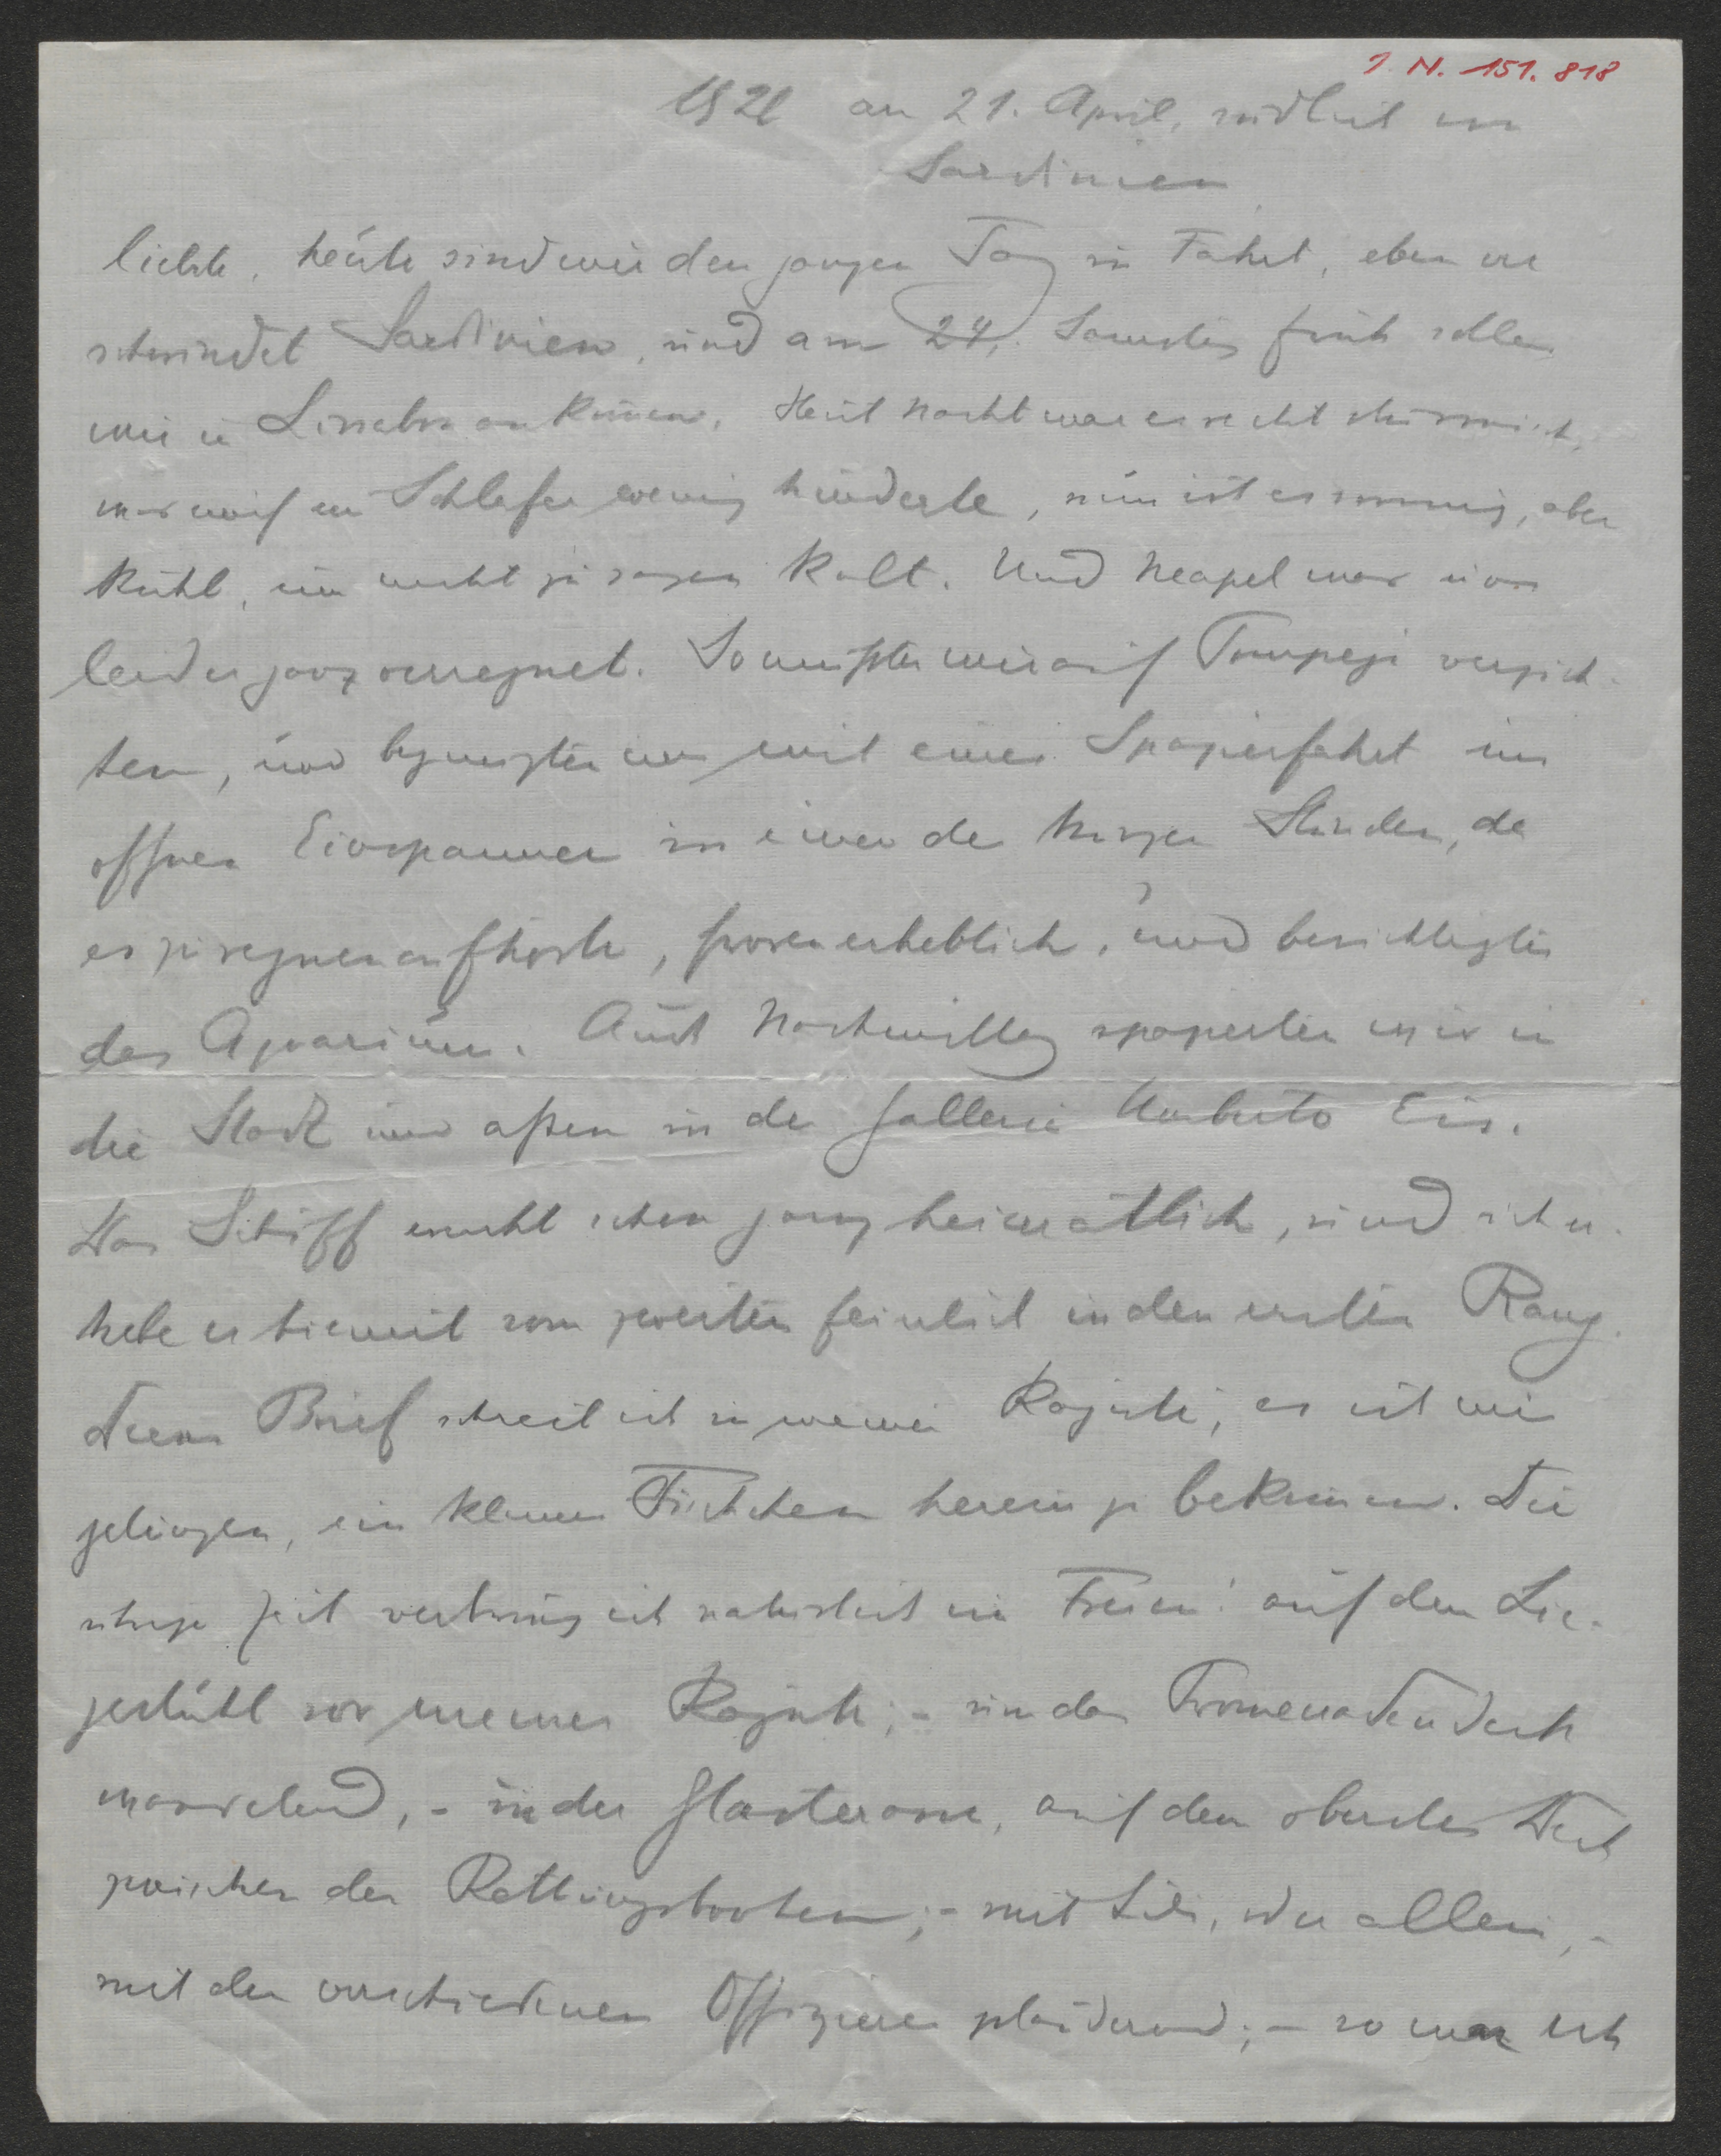 I. N. 151. 818
1928 am 21. April, südlich von
Sardinien
liebste, heute sind wir den ganzen Tag in Fahrt, eben ver
schwindet Sardinien, und am 24. Samstag früh sollen
wir in Lissabon ankommen. Heut Nacht war es recht stürmisch,
was mich im Schlafen wenig hinderte, nun ist es sonnig, aber
kühl, um nicht zu sagen kalt. Und Neapel war uns
leider ganz verregnet. So mußten wir auf Pompeji verzich-
ten, und begnügten uns mit einer Spazierfahrt im
offnen Einspänner in einer der kurzen Stunden, da
es zu regnen aufhörte, froren erheblich, und besichtigten
das Aquarium. Auch Nachmittag spazierten wir in
die Stadt und aßen in der Gallerie Umberto Eis.
Das Schiff macht schon ganz heimatlich, und ich er-
hebe es hiermit vom zweiten feierlich in den ersten Rang.
Diesen Brief schreib ich in meiner Kajüte, es ist mir
gelungen, ein kleines Tischchen herein zu bekommen. Die
übrige Zeit verbring ich natürlich im Freien: auf dem Lie-
gestuhl vor meiner Kajüte; - um das Promenadendeck
wandelnd, - in der Glasterasse, auf dem obersten Deck
zwischen den Rettungsbooten; - mit Lili, oder allein, -
mit den verschiedenen Offizieren plaudernd; - so war ich